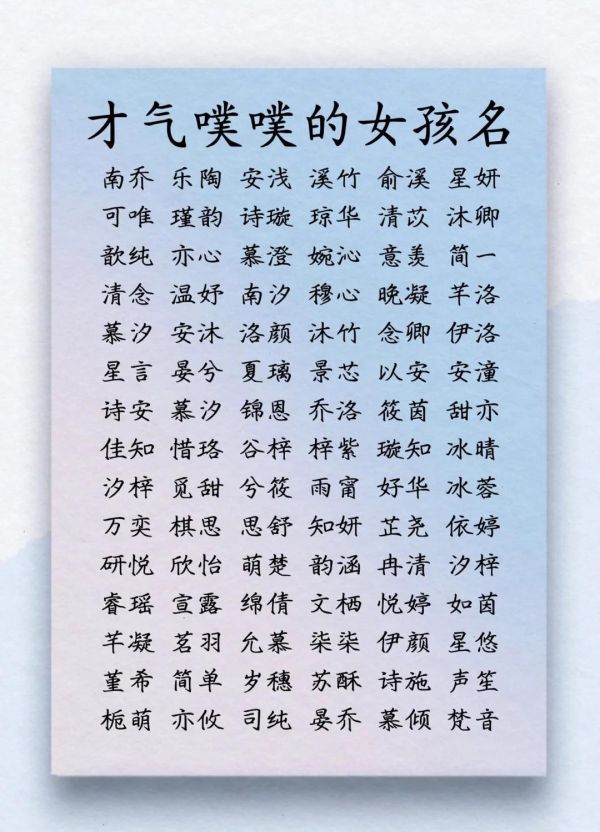 才气噗噗的女孩名
南乔 乐陶 安浅 溪竹 俞溪 星妍
可唯 瑾韵 诗璇 琼华 清苡 沐卿
歆纯 亦心 慕澄 婉沁 意羡 简一
清念 温妤 南汐 穆心 晚凝 芊洛
慕汐 安沐 洛颜 沐竹 念卿 伊洛
星言 晏兮 夏璃 景芯 以安 安潼
诗安 慕汐 锦恩 乔洛 筱茵 甜亦
佳知 惜珞 谷梓 梓紫 璇知 冰晴
汐梓 觅甜 兮筱 雨甯 好华 冰蓉
万奕 棋思 思舒 知妍 芷尧 依婷
研悦 欣怡 萌楚 韵涵 冉清 汐梓
睿瑶 宣露 绵倩 文栖 悦婷 如茵
芊凝 茗羽 允慕 柒柒 伊颜 星悠
堇希 简单 岁穗 苏酥 诗施 声笙
栀萌 亦攸 司纯 晏乔 慕倾 梵音